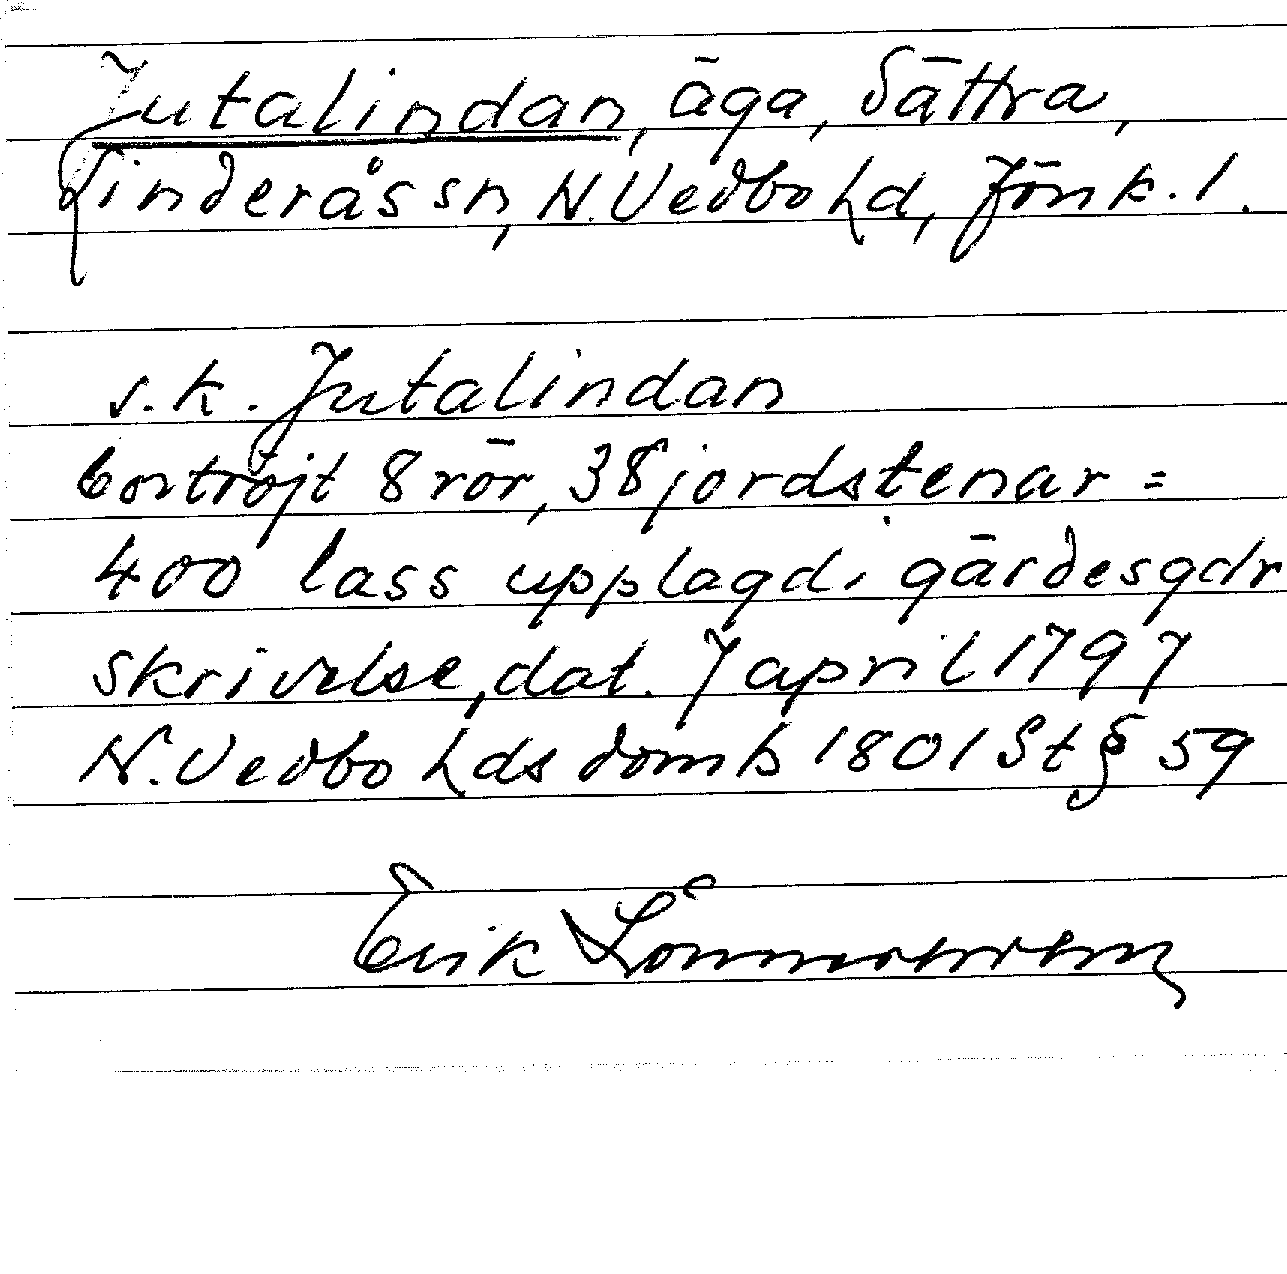 Jutalindan, äga, Sättra,
Linderås sn, N. Vedbo hd, Jönk. l.
s.k. Jutalindan
bortröjt 8 rör, 38 jordstenar =
400 lass upplagd i gärdesgdr
skrivelse, dat. 7 april 1797
N. Vedbo hds domb 1801 St § 59
Erik Lönnerholm